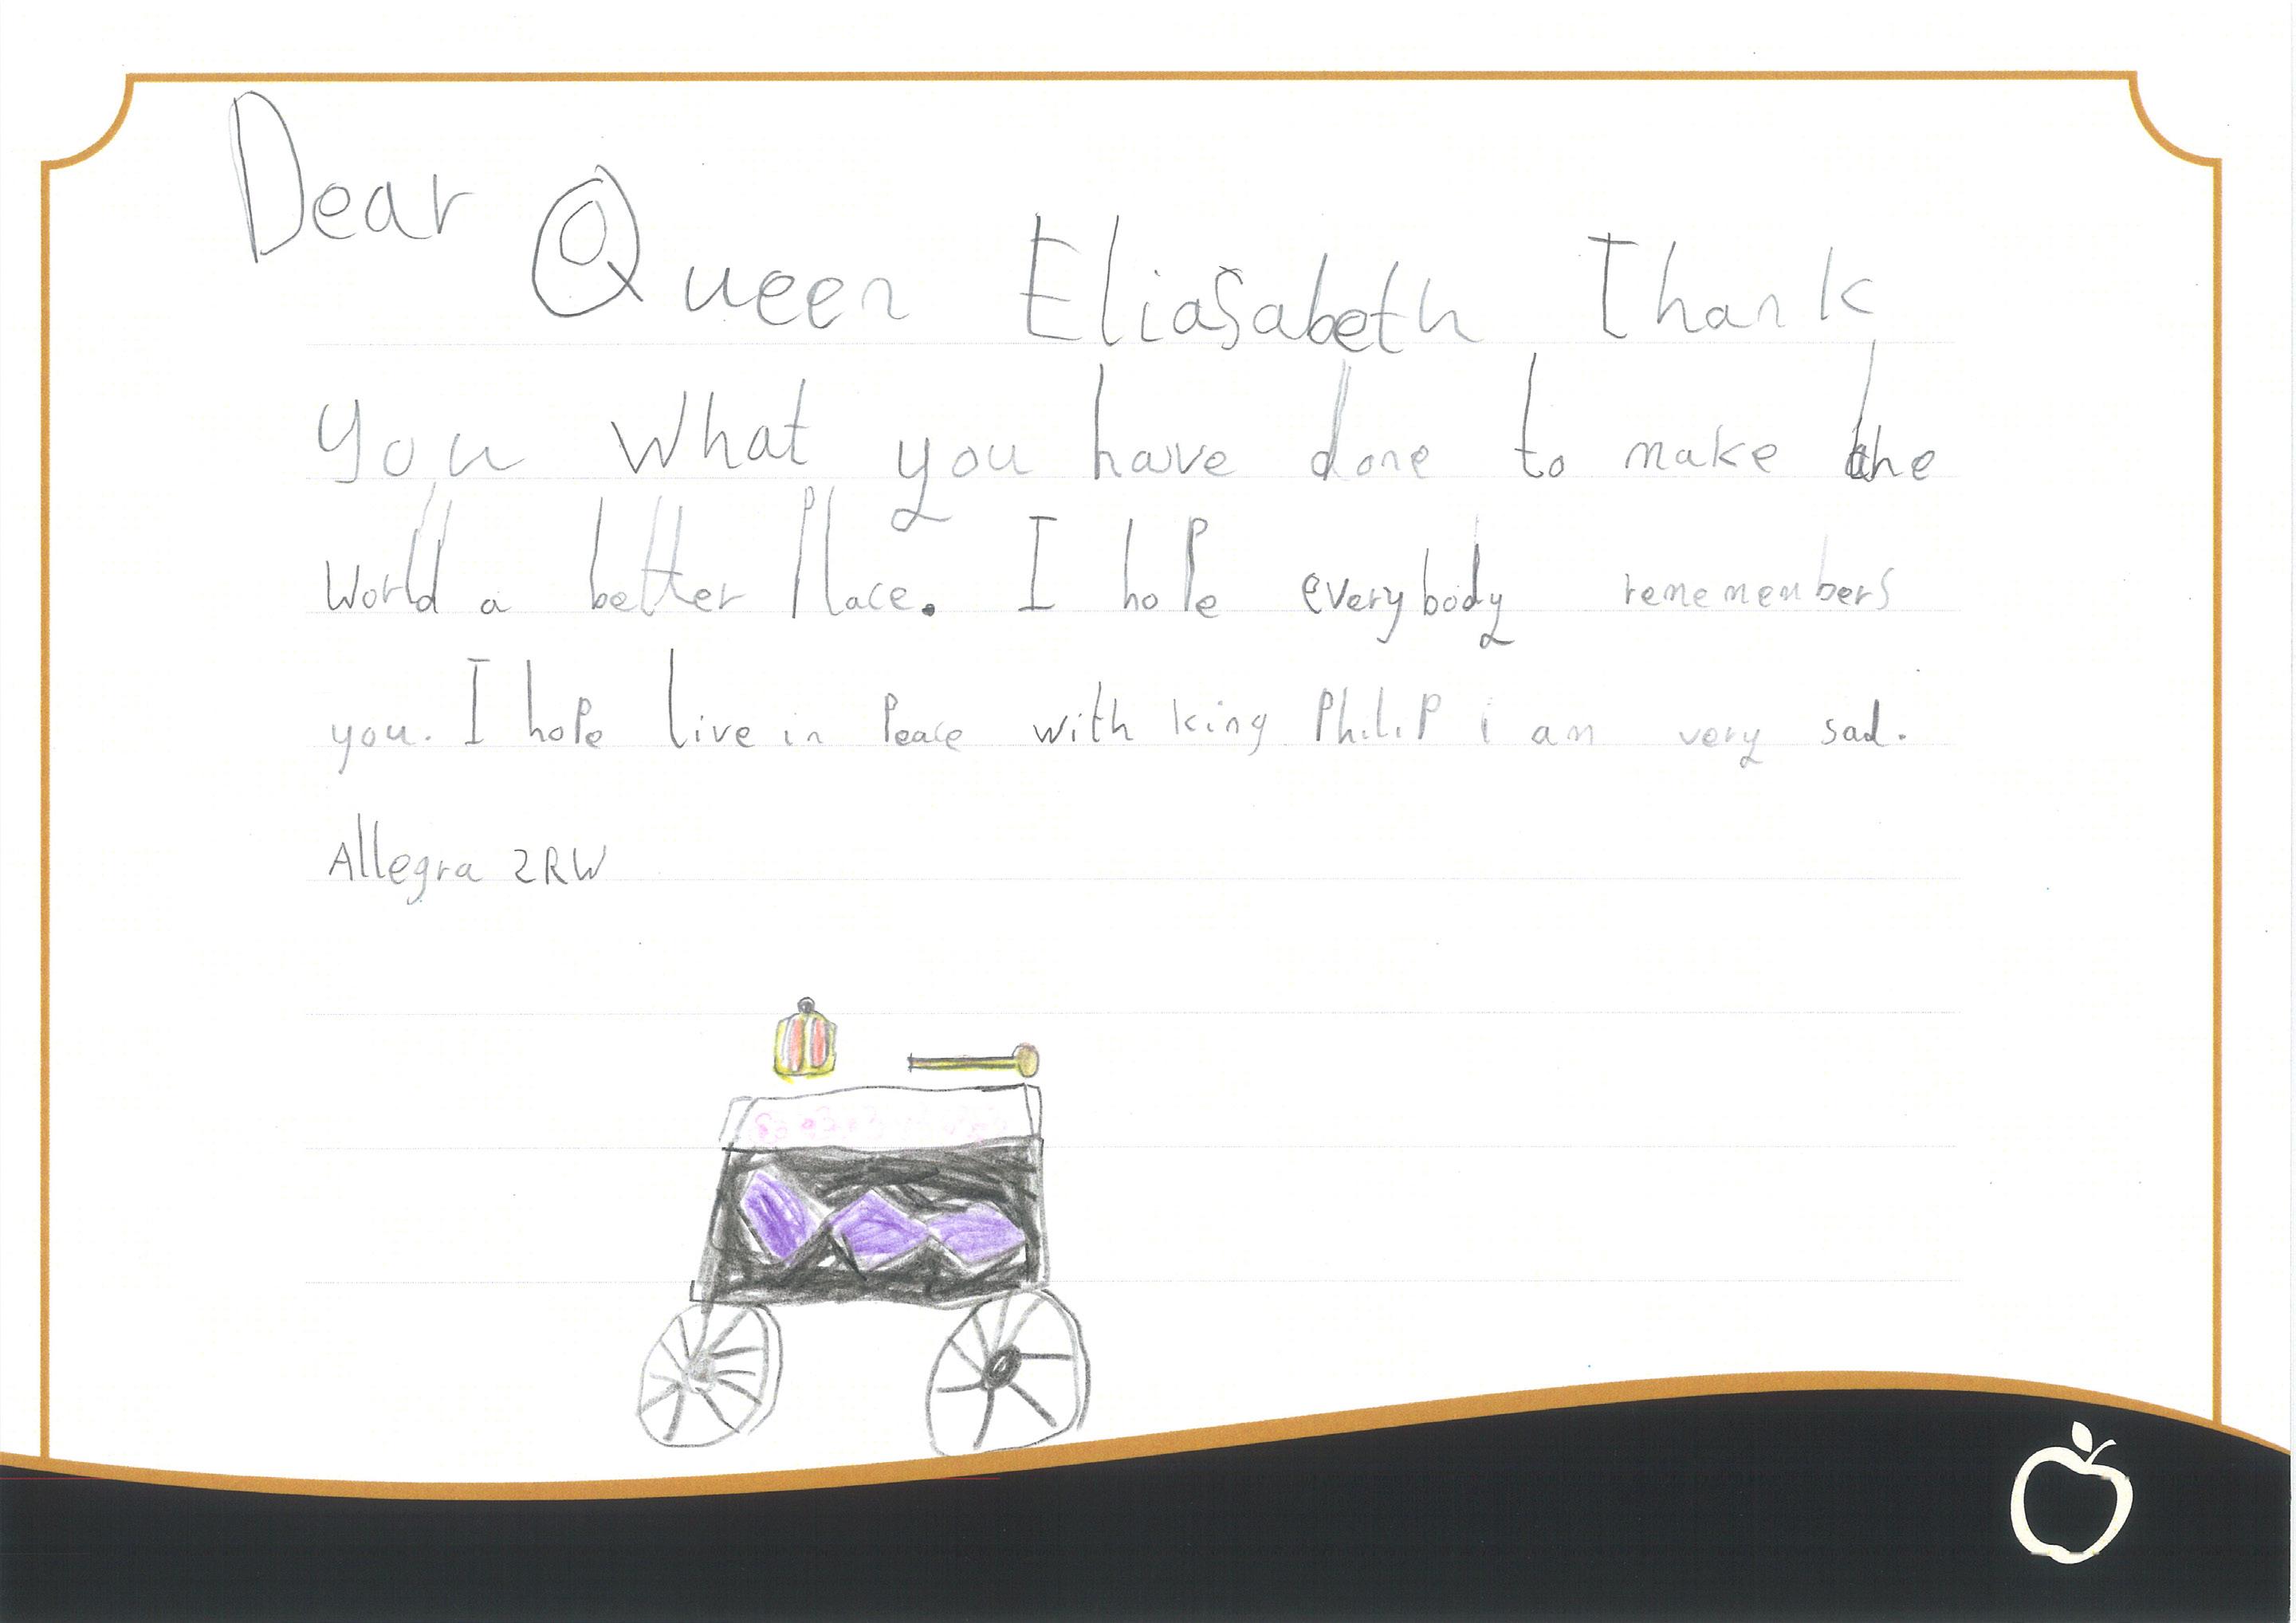 Dear Queen Eliasabeth Thank
you what you have done to make the
world a better Place. I hope everybody rememembers
you. I hope live in Peace with king Philip i am very sad.
Allegra 2RW